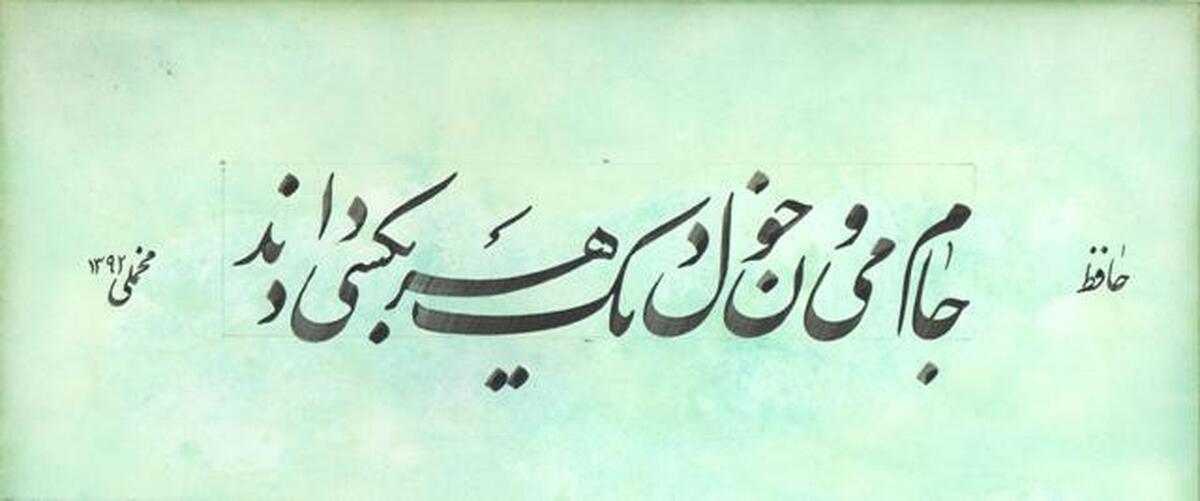 حافظ
جام می و خون دل هر یک به کسی دادند
مخملی ۱۳۹۲